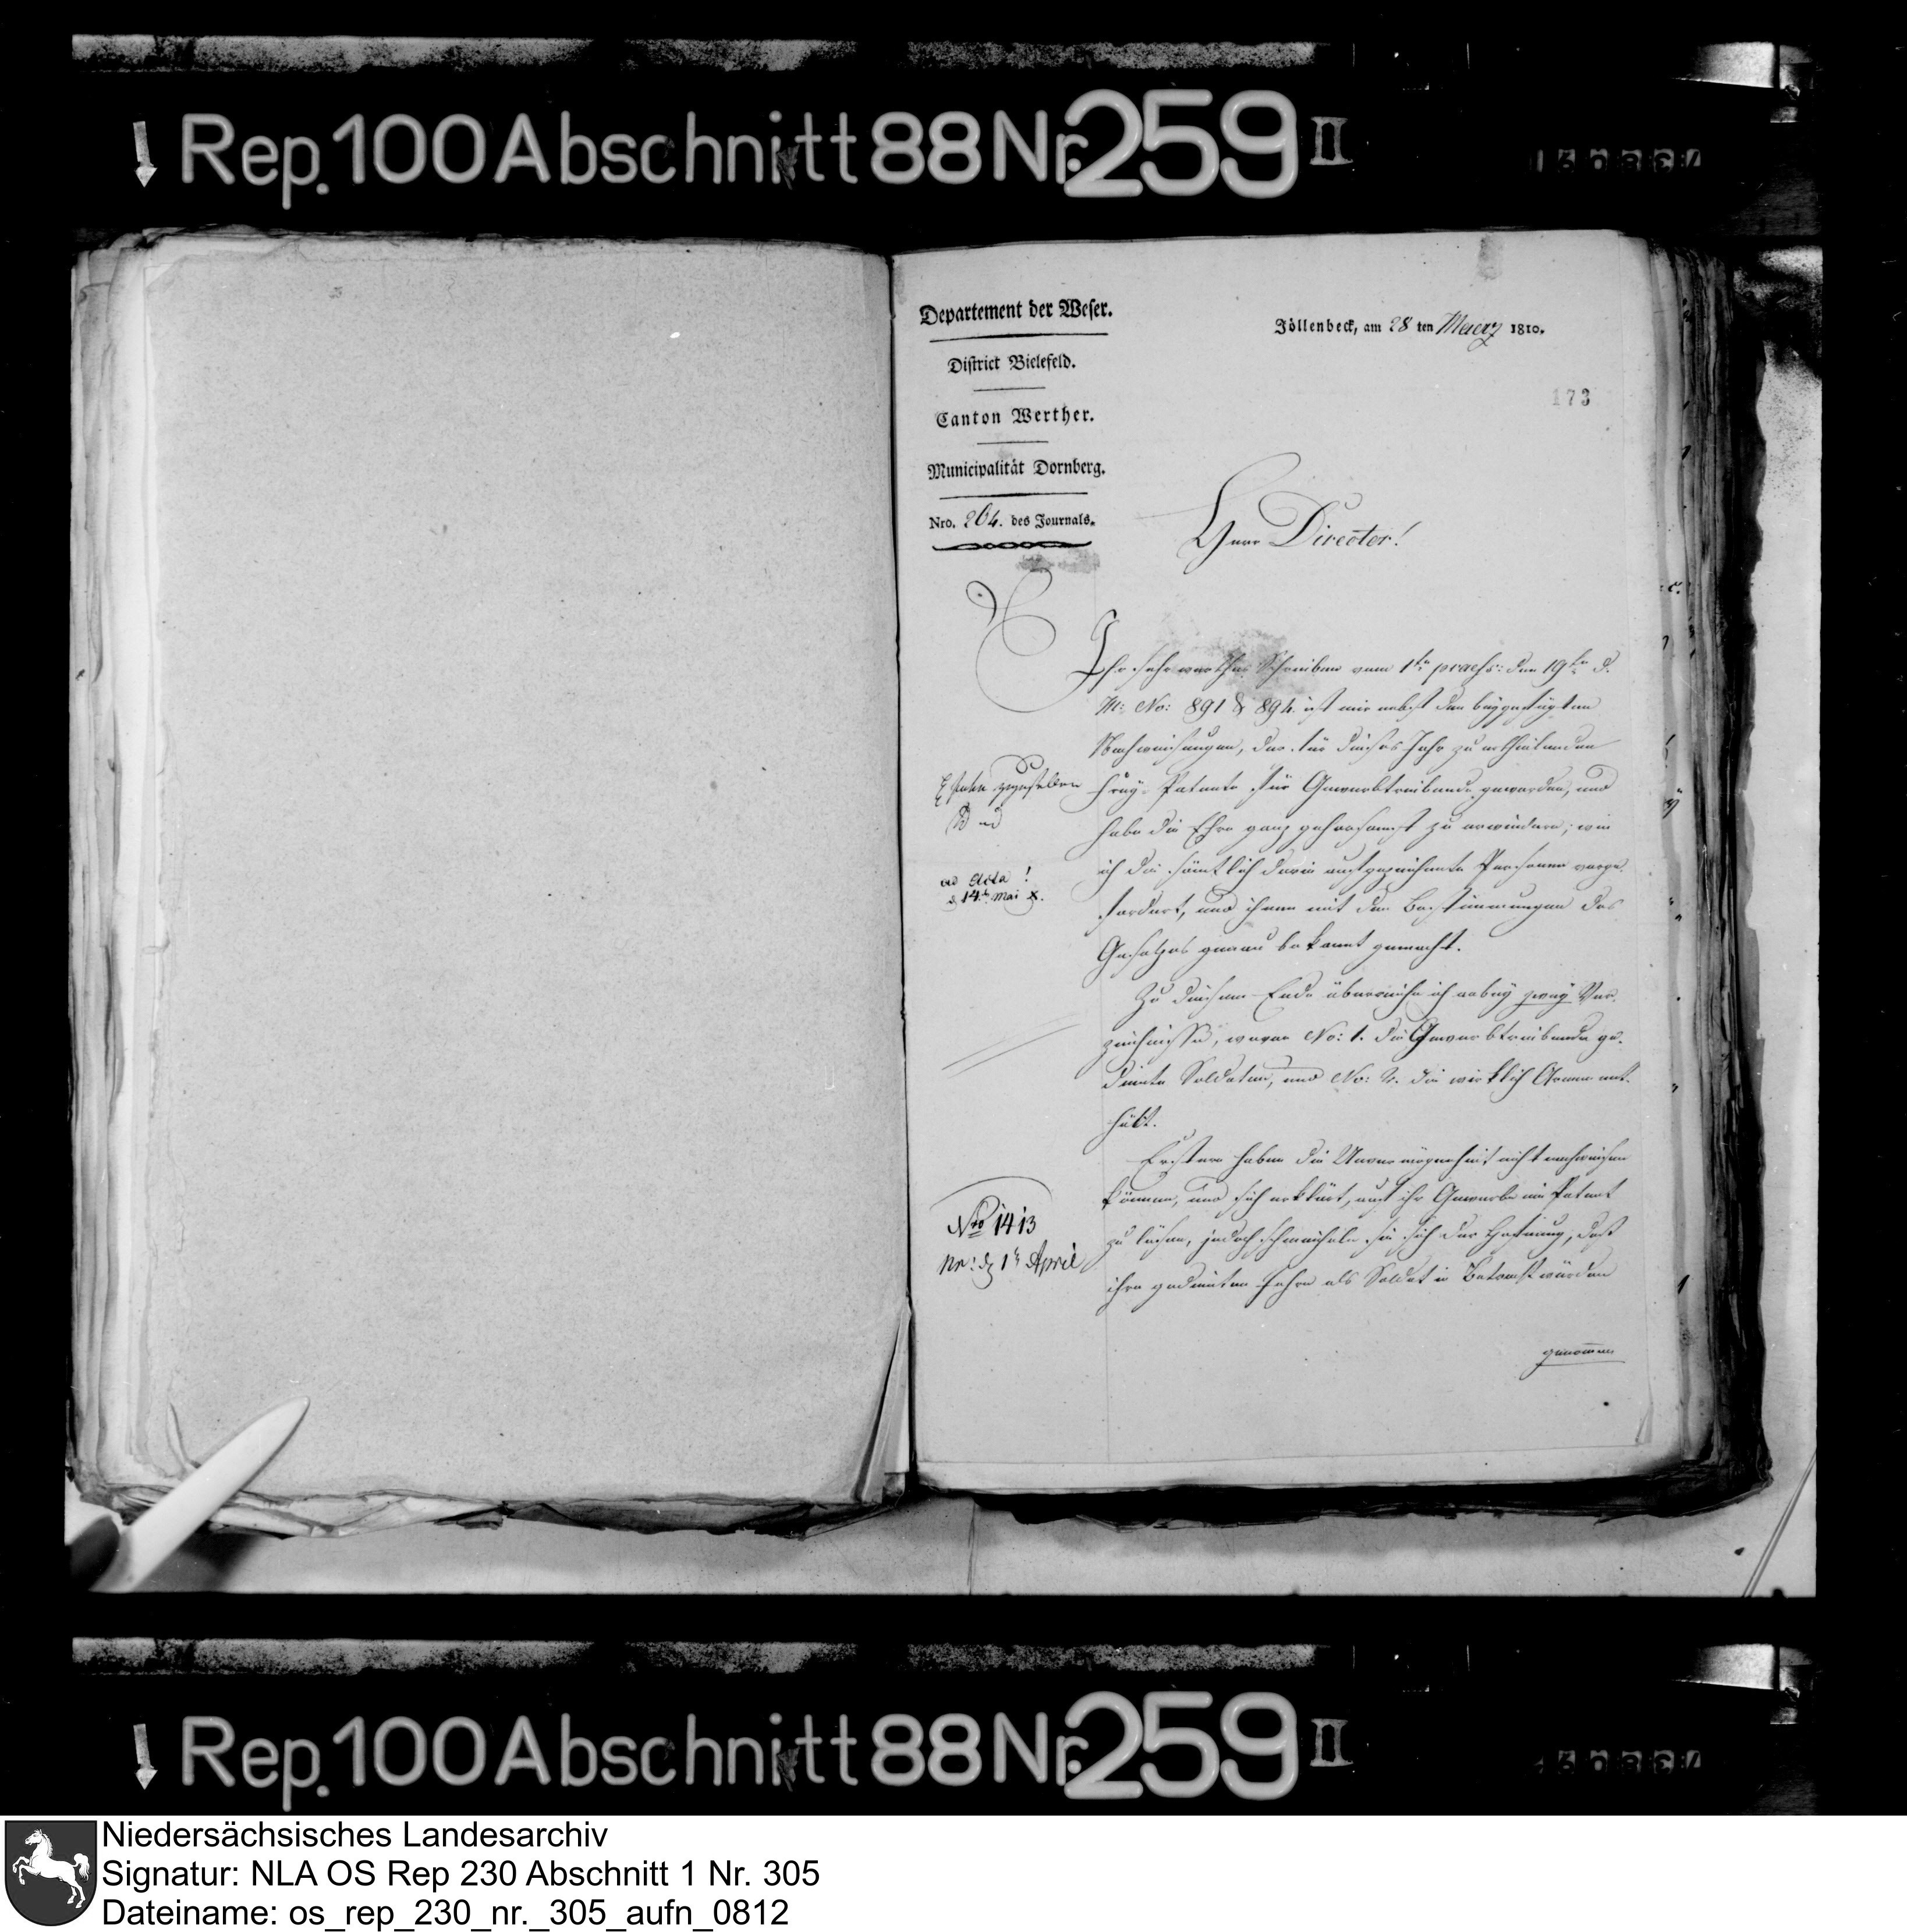 Rep. 100 Abschnitt 88 Nr. 259 II
Departement der Weser.
District Bielefeld.
Canton Werther.
Municipalität Dornberg.
Nro. 264. des Journals.
Jöllenbeck, am 28 ten Maerz 1810.
173
Herr Director!
Ihr sehr werthes Schreiben vom 1ten praes: den 19ten d.
M: No: 891 & 894. ist mir nebst den beygefügten
Nachweisungen, der für dieses Jahr zu ertheilenden
frey-Patente für Gewerbtreibende geworden, und
habe die Ehre ganz gehorsamst zu erwiedern; wie
ich die sämtlich darin aufgezeichnete Personen vorge-
fordert, und ihnen mit den Bestimmungen des
Gesetzes genau bekannt gemacht.
Zu diesem Ende überreiche ich anbey zwey Ver-
zeichnisse, wovon No: 1. die Gewerbtreibende ge-
diente Soldaten, und No: 2. die wirklich Armen ent-
hält.
Erstere haben die Unvermögenheit nicht nachweisen
können, und sich erklärt, auf ihr Gewerbe ein Patent
zu lösen, jedoch schmeicheln sie sich der Hofnung, daß
ihre gedienten Jahre als Soldat in Betracht würden
genommen
ad Acta!
d 14t Mai
Nro 1413
pr: d 1t April
Rep. 100 Abschnitt 88 Nr. 259 II
Niedersächsisches Landesarchiv
Signatur: NLA OS Rep 230 Abschnitt 1 Nr. 305
Dateiname: os_rep_230_nr._305_aufn_0812